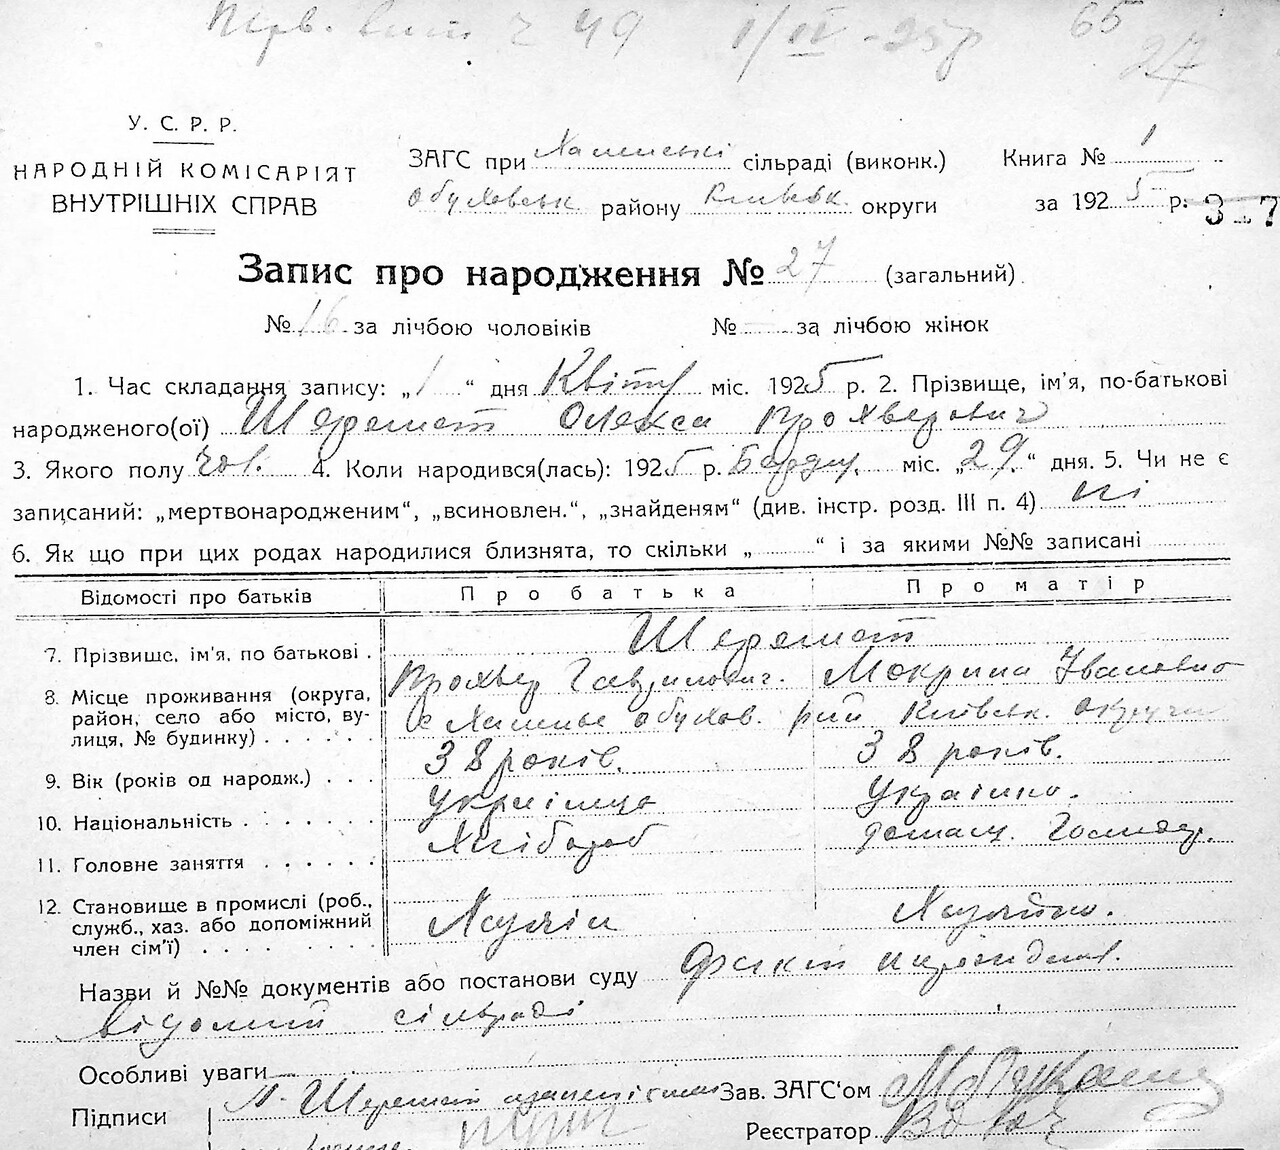 Перв. вип. ч 49 1/IV-25р 65
27
У. С. Р. Р.
НАРОДНІЙ КОМІСАРІЯТ
ВНУТРІШНІХ СПРАВ
ЗАГС при сільраді (виконк.)
Обухівськ району Київськ. округи
Книга № 1
за 1925 р.
3 7
Запис про народження № 27 (загальний)
№ 16 за лічбою чоловіків № — за лічбою жінок
1. Час складання запису: „1“ дня Квітня міс. 1925 р. 2. Прізвище, ім'я, по-батькові
народженого(ої) Шеремет Олекса Прохверович
3. Якого полу Чол. 4. Коли народився(лась): 1925 р. міс. „29.“ дня. 5. Чи не є
записаний: „мертвонародженим“, „всиновлен.“, „знайденям“ (див. інстр. розд. III п. 4) ні
6. Як що при цих родах народилися близнята, то скільки „ “ і за якими №№ записані
Відомості про батьків Про батька Про матір
7. Прізвище, ім'я, по батькові . Шеремет
Гаврилович. Мокрина Івановна
8. Місце проживання (округа, район, село або місто, вулиця, № будинку) . . . . . . с обухов. рай Київськ. округи
9. Вік (років од народж.) . . . 38 років. 38 років.
10. Національність . . . . . . . українець Українка.
11. Головне заняття . . . . . . Хлібороб домашн. Господар.
12. Становище в промислі (роб., служб., хаз. або допоміжний член сім'ї) . . . . . . . . Хазяїн Хазяйка.
Назви й №№ документів або постанови суду Факт
відомий сільраді
Особливі уваги —
Підписи Шеремет
Зав. ЗАГС'ом
Реєстратор